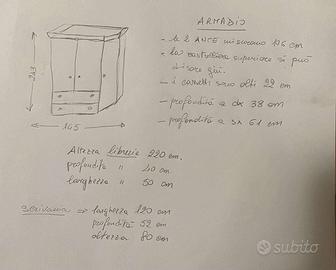 ARMADIO
- le 2 ANTE misurano 176 cm
- la cassettiera superiore si può
tirare giù.
- i cassetti sono alti 22 cm
- profondità a dx 38 cm
- profondità a sx 61 cm
243
165
Altezza libreria 220 cm.
profondità " 40 cm
larghezza " 50 cm
scrivania => larghezza 120 cm
profondità 52 cm
altezza 80 cm
subito